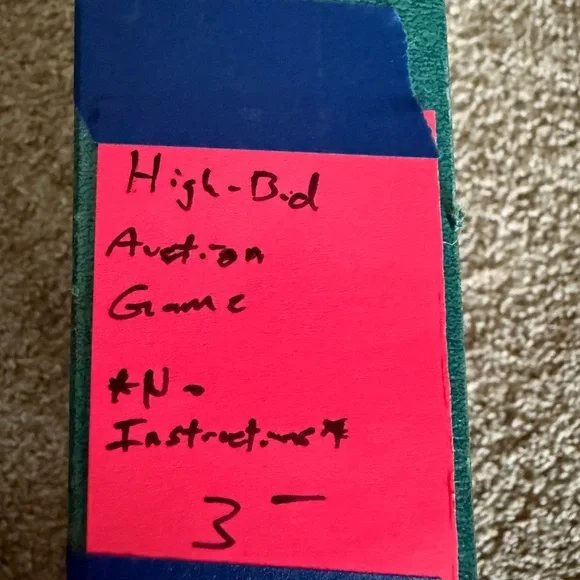 High-Bid
Auction
Game
*No
Instructions*
3 -